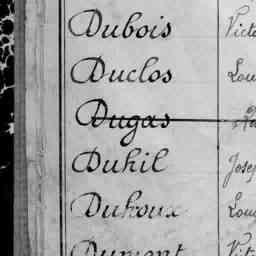 Dubois Victo
Duclos Lou
Dugas
Duhil Josep
Duhoux Loui
Dumont Vict